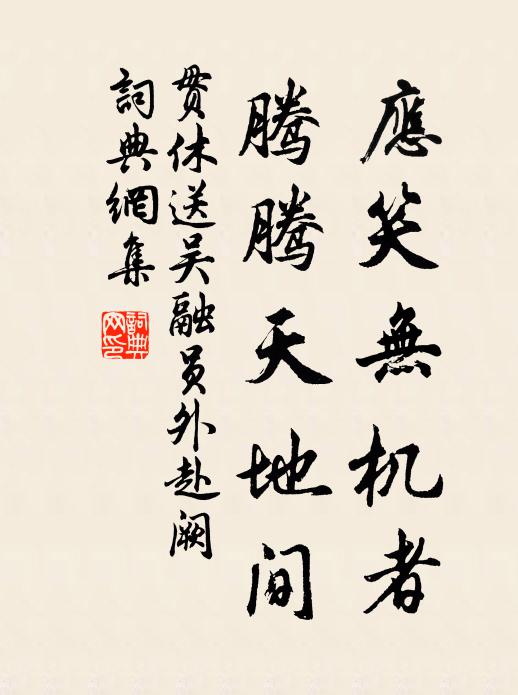 應笑無机者
腾腾天地间
贯休送吴融員外赴阙
詞典網集
詞典
网印